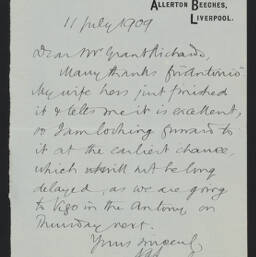 Allerton Beeches,
Liverpool.
11 July 1909
Dear Mr Grant Richards,
Many thanks for 'Antonio'
My wife has just finished
it & tells me it is excellent,
so I am looking forward to
it at the earliest chance,
which will not be long
delayed, as we are going
to Vigo in the Antony on
Thursday next.
Yours sincerely